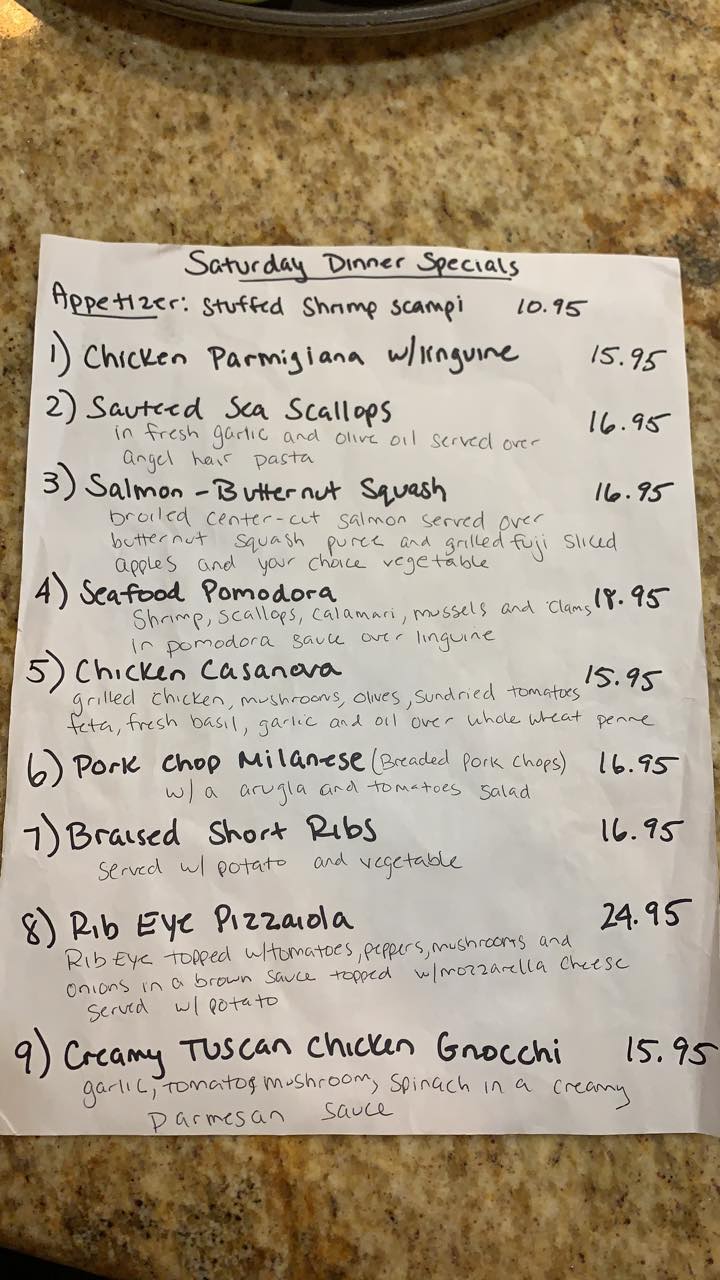 Saturday Dinner Specials
Appetizer: Stuffed Shrimp Scampi 10.95
1) Chicken Parmigiana w/linguine 15.95
2) Sauteed Sea Scallops 16.95
in fresh garlic and olive oil served over
angel hair pasta
3) Salmon - Butternut Squash 16.95
broiled center-cut salmon served over
butternut squash puree and grilled fuji sliced
apples and your choice vegetable
4) Seafood Pomodora 18.95
Shrimp, scallops, calamari, mussels and clams
in pomodora sauce over linguine
5) Chicken Casanova 15.95
grilled chicken, mushrooms, olives, sundried tomatoes
feta, fresh basil, garlic and oil over whole wheat penne
6) Pork Chop Milanese (Breaded Pork Chops) 16.95
w/ a arugla and tomatoes salad
7) Braised Short Ribs 16.95
served w/ potato and vegetable
8) Rib Eye Pizzaiola 24.95
Rib Eye topped w/tomatoes, peppers, mushrooms and
onions in a brown sauce topped w/mozzarella cheese
served w/ potato
9) Creamy Tuscan Chicken Gnocchi 15.95
garlic, tomatoes mushroom, spinach in a creamy
Parmesan sauce